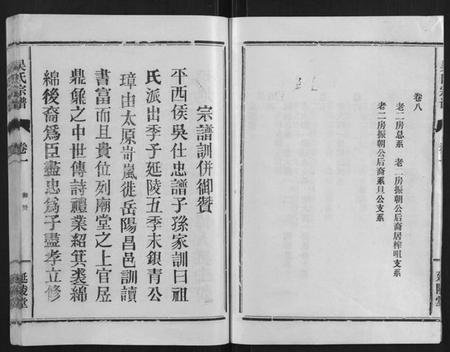 卷八
老二房总系 老二房振朝公后裔居榨咀支系
老二房振朝公后裔系旦公支系
宗譜訓併御贊
平西侯吳仕忠譜子孫家訓曰祖
氏派出季子延陵五季末銀青公
璋由太原岢嵐徙岳陽昌邑訓讀
書富而且貴位列廟堂之上官居
鼎鼐之中世傳詩禮業紹箕裘綿
綿後裔爲臣盡忠爲子盡孝立修
吳氏宗譜
卷一
延陵堂